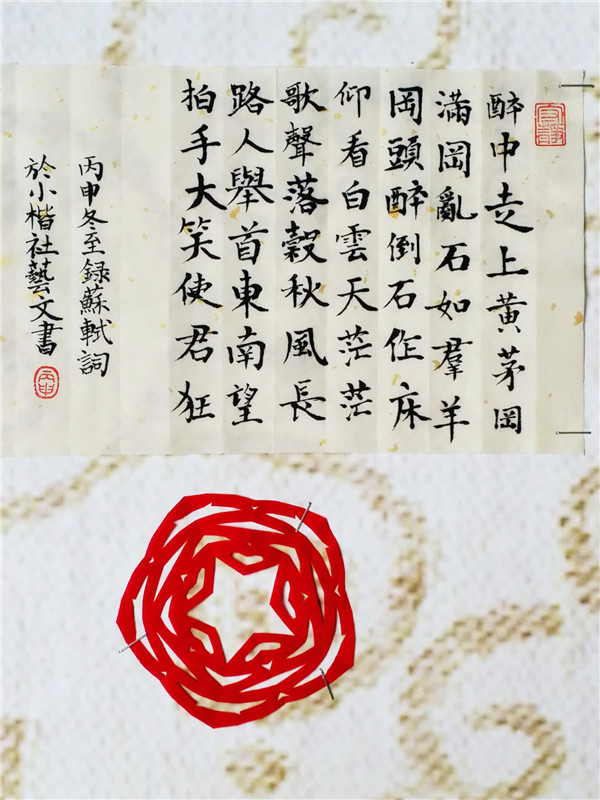 醉中走上黃茅岡
滿岡亂石如羣羊
岡頭醉倒石作床
仰看白雲天茫茫
歌聲落穀秋風長
路人舉首東南望
拍手大笑使君狂
丙申冬至録蘇軾詞
於小楷社藝文書
丙申